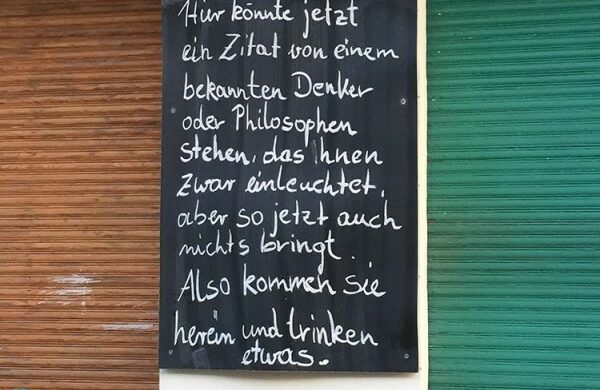 Hier könnte jetzt
ein Zitat von einem
bekannten Denker
oder Philosophen
stehen, das Ihnen
zwar einleuchtet,
aber so jetzt auch
nichts bringt..
Also kommen Sie
herein und trinken
etwas.